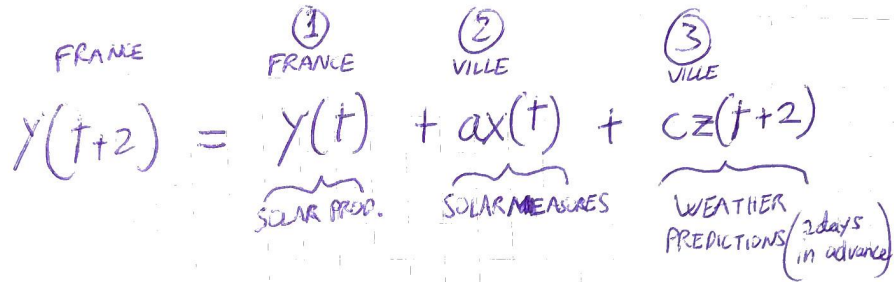 ① ② ③
FRANCE FRANCE VILLE VILLE
y(t+2) = y(t) + ax(t) + cz(t+2)
SOLAR PROD. SOLAR MEASURES WEATHER
PREDICTIONS (2days
in advance)